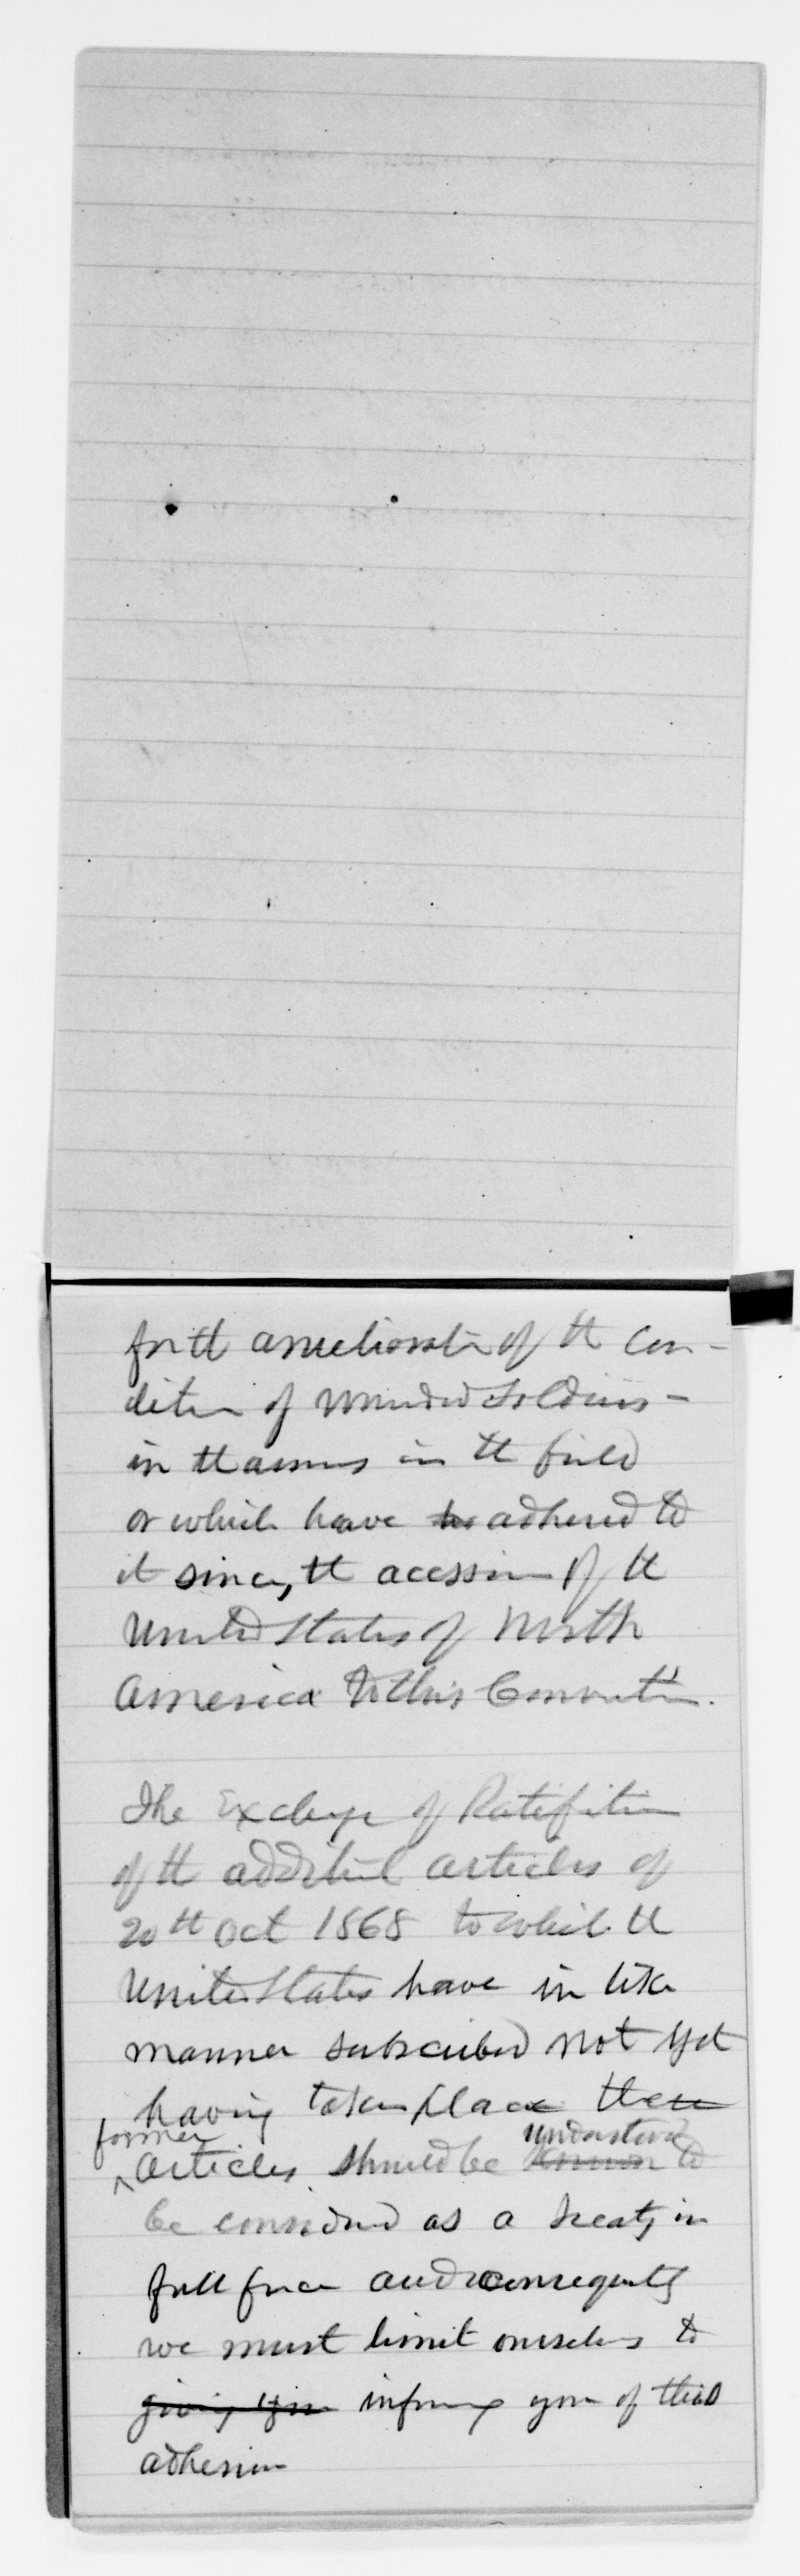 for th amelioratn of th Con-
ditn of wounded Soldiers -
in th armies in th field
or which have be adhered to
it since, th acession of th
United States of North
America to this Convention.
The Exchange of Ratification
of th additional articles of
20th Oct 1868 to which th
United States have in like
manner subscribed not yet
having taken place these
former understood
^ articles should be known to
be considered as a treaty in
full force and consequently
we must limit ourselves to
giving you informg you of this
adhesion